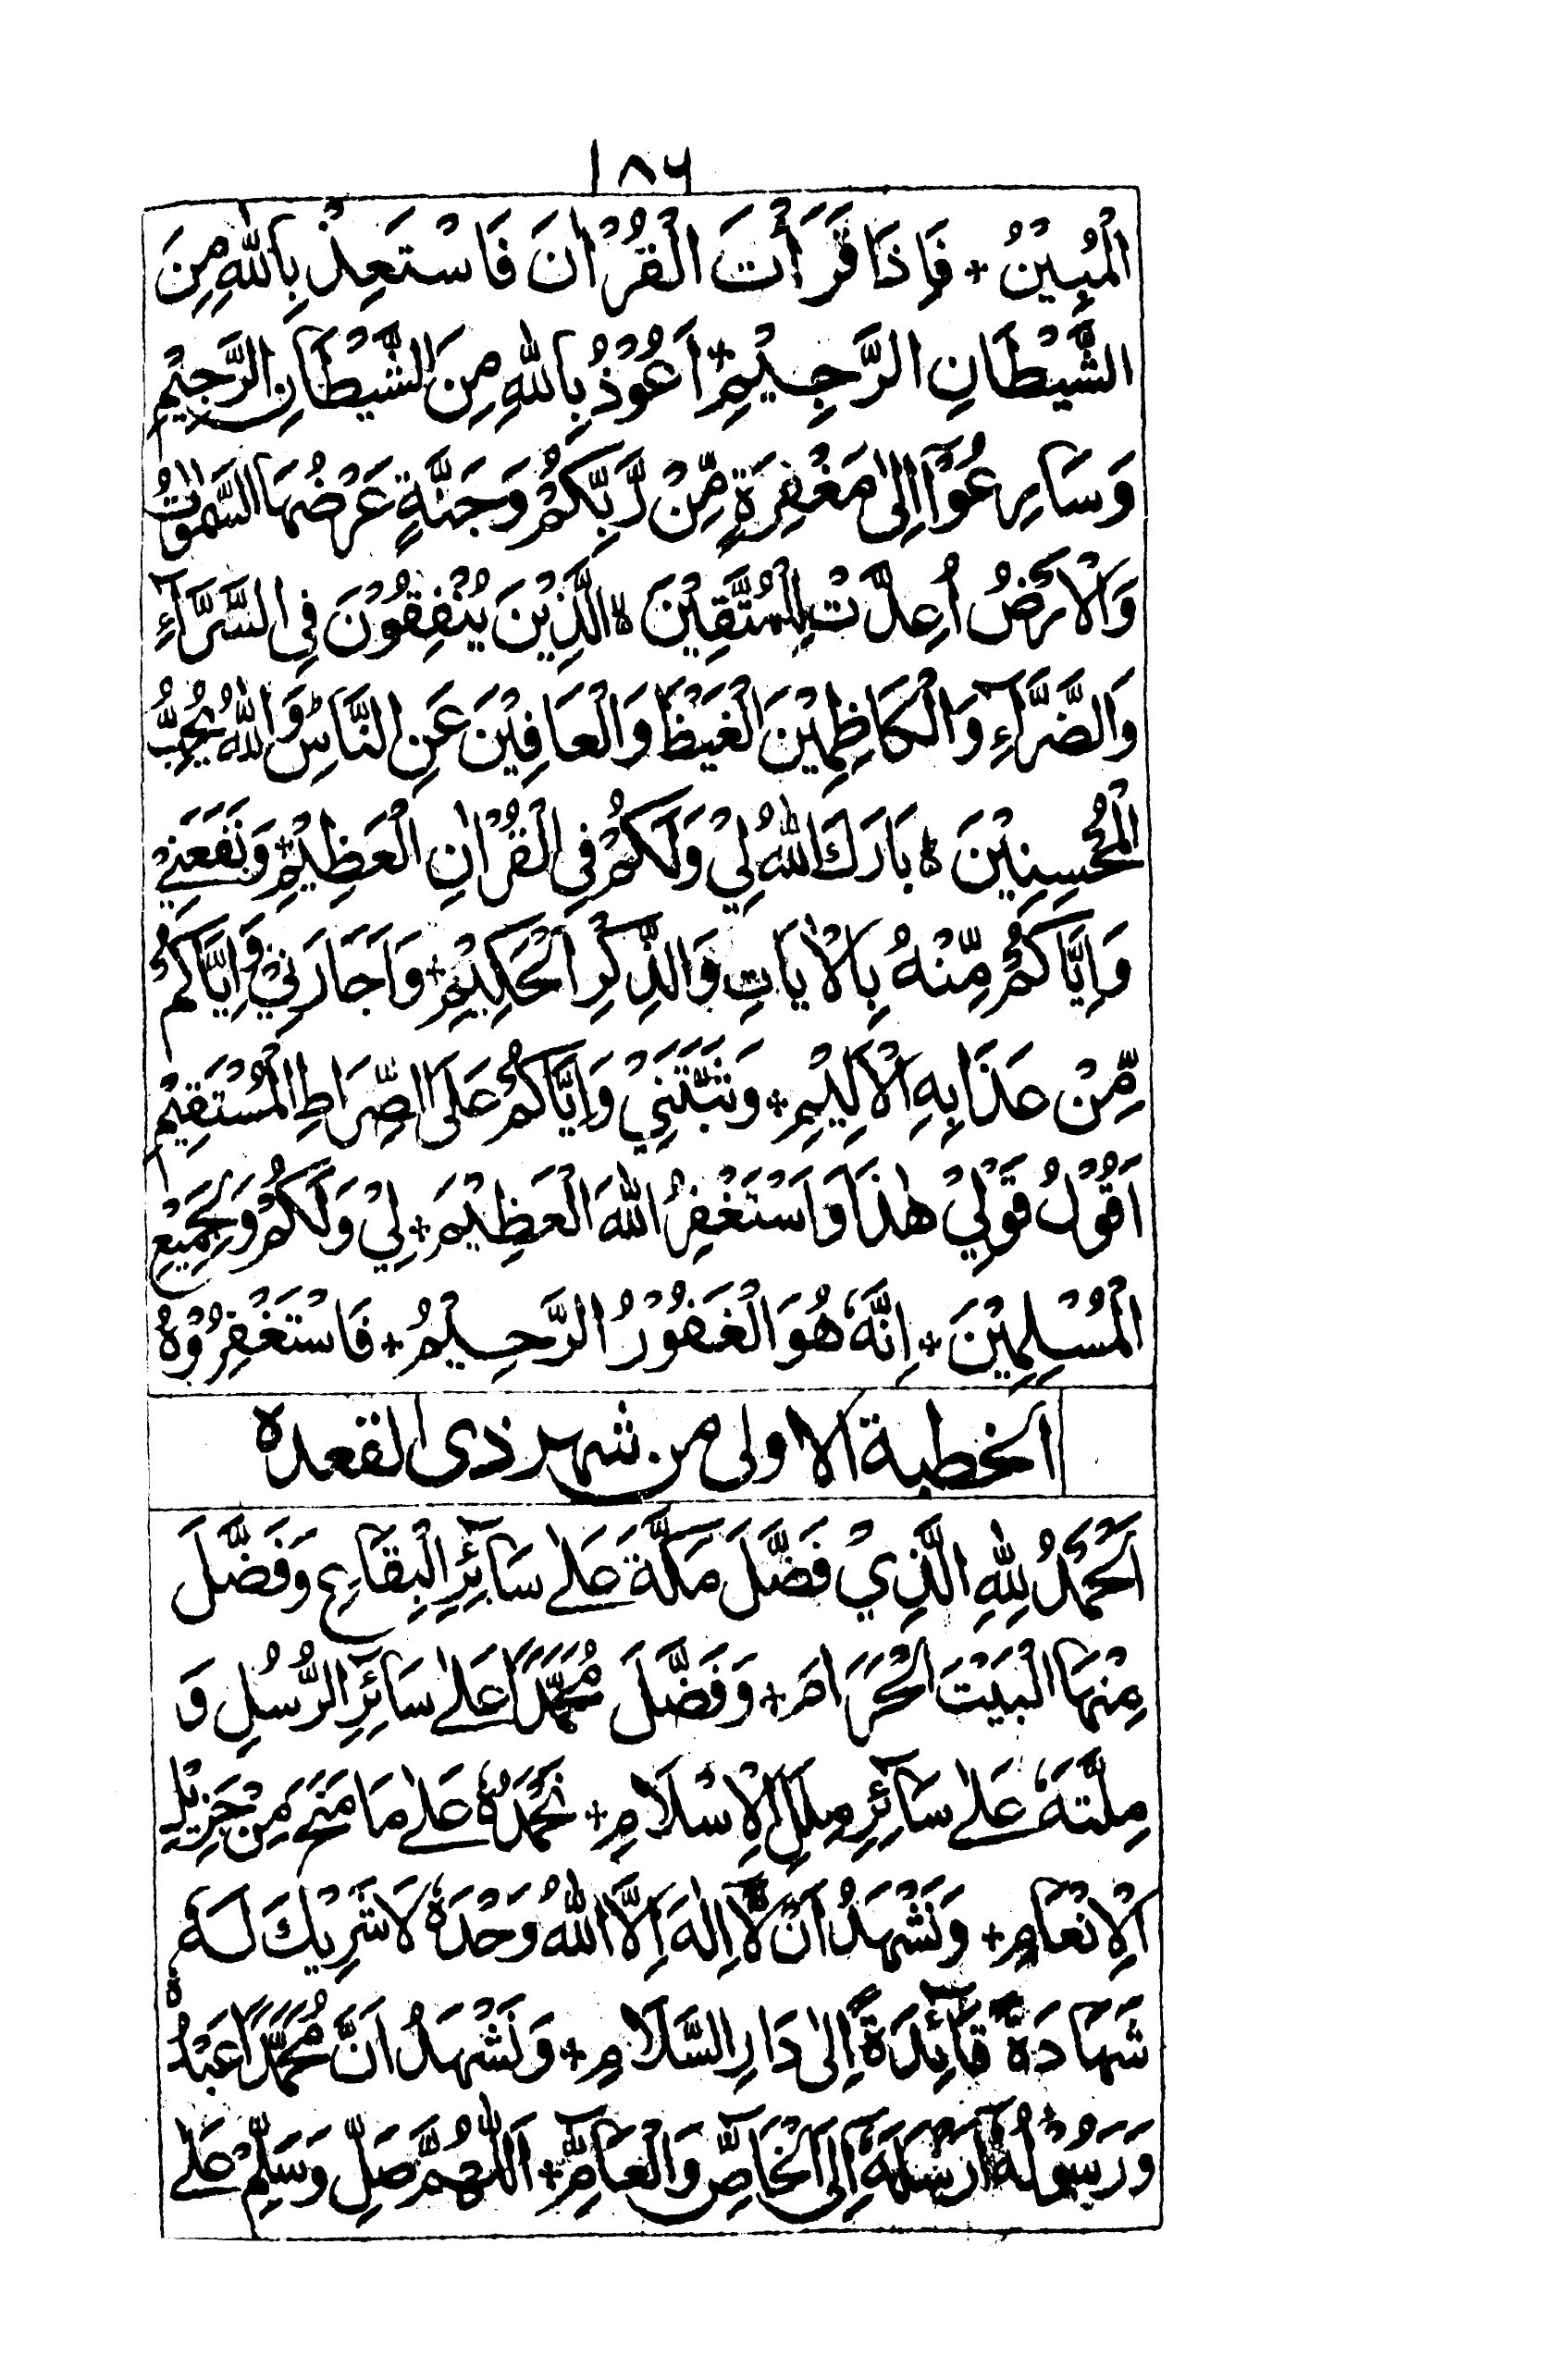 ١٨٦
الْمُبِيْنُ + فَاِذَا قَرَأْتَ الْقُرْاٰنَ فَاسْتَعِذْ بِاللّٰهِ مِنَ
الشَّيْطَانِ الرَّجِيْمِ + اَعُوْذُ بِاللّٰهِ مِنَ الشَّيْطَانِ الرَّجِيْمِ
وَسَارِعُوْٓا اِلٰى مَغْفِرَةٍ مِّنْ رَّبِّكُمْ وَجَنَّةٍ عَرْضُهَا السَّمٰوٰتُ
وَالْاَرْضُ اُعِدَّتْ لِلْمُتَّقِيْنَ ۙ الَّذِيْنَ يُنْفِقُوْنَ فِى السَّرَّآءِ
وَالضَّرَّآءِ وَالْكَاظِمِيْنَ الْغَيْظَ وَالْعَافِيْنَ عَنِ النَّاسِ ؕ وَاللّٰهُ يُحِبُّ
الْمُحْسِنِيْنَ ۚ بَارَكَ اللّٰهُ لِيْ وَلَكُمْ فِى الْقُرْاٰنِ الْعَظِيْمِ + وَنَفَعَنِيْ
وَاِيَّاكُمْ مِّنْهُ بِالْاٰيَاتِ وَالذِّكْرِ الْحَكِيْمِ + وَاَجَارَنِيْ وَاِيَّاكُمْ
مِّنْ عَذَابِهِ الْاَلِيْمِ + وَثَبَّتَنِيْ وَاِيَّاكُمْ عَلَى الصِّرَاطِ الْمُسْتَقِيْمِ
اَقُوْلُ قَوْلِيْ هٰذَا وَاَسْتَغْفِرُ اللّٰهَ الْعَظِيْمَ + لِيْ وَلَكُمْ وَلِجَمِيْعِ
الْمُسْلِمِيْنَ + اِنَّهٗ هُوَ الْغَفُوْرُ الرَّحِيْمُ + فَاسْتَغْفِرُوْهُ
الخطبة الاولى من شهر ذى القعده
اَلْحَمْدُ لِلّٰهِ الَّذِيْ فَضَّلَ مَكَّةَ عَلٰى سَآئِرِ الْبِقَاعِ وَفَضَّلَ
مِنْهَا الْبَيْتَ الْحَرَامَ + وَفَضَّلَ مُحَمَّدًا عَلٰى سَآئِرِ الرُّسُلِ وَ
مِلَّتَهٗ عَلٰى سَآئِرِ مِلَلِ الْاِسْلَامِ + نَحْمَدُهٗ عَلٰى مَا مَنَحَ مِنْ جَزِيْلِ
الْاِنْعَامِ + وَنَشْهَدُ اَنْ لَّآ اِلٰهَ اِلَّا اللّٰهُ وَحْدَهٗ لَا شَرِيْكَ لَهٗ
شَهَادَةً قَآئِدَةً اِلٰى دَارِ السَّلَامِ + وَنَشْهَدُ اَنَّ مُحَمَّدًا عَبْدُهٗ
وَرَسُوْلُهٗٓ اَرْسَلَهٗٓ اِلَى الْخَآصِّ وَالْعَآمِّ + اَللّٰهُمَّ صَلِّ وَسَلِّمْ عَلٰى